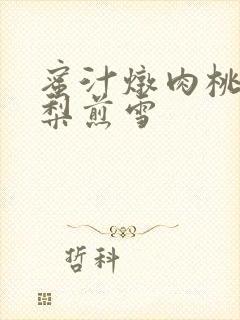 蜜汁燉肉桃
梨煎雪
哲科